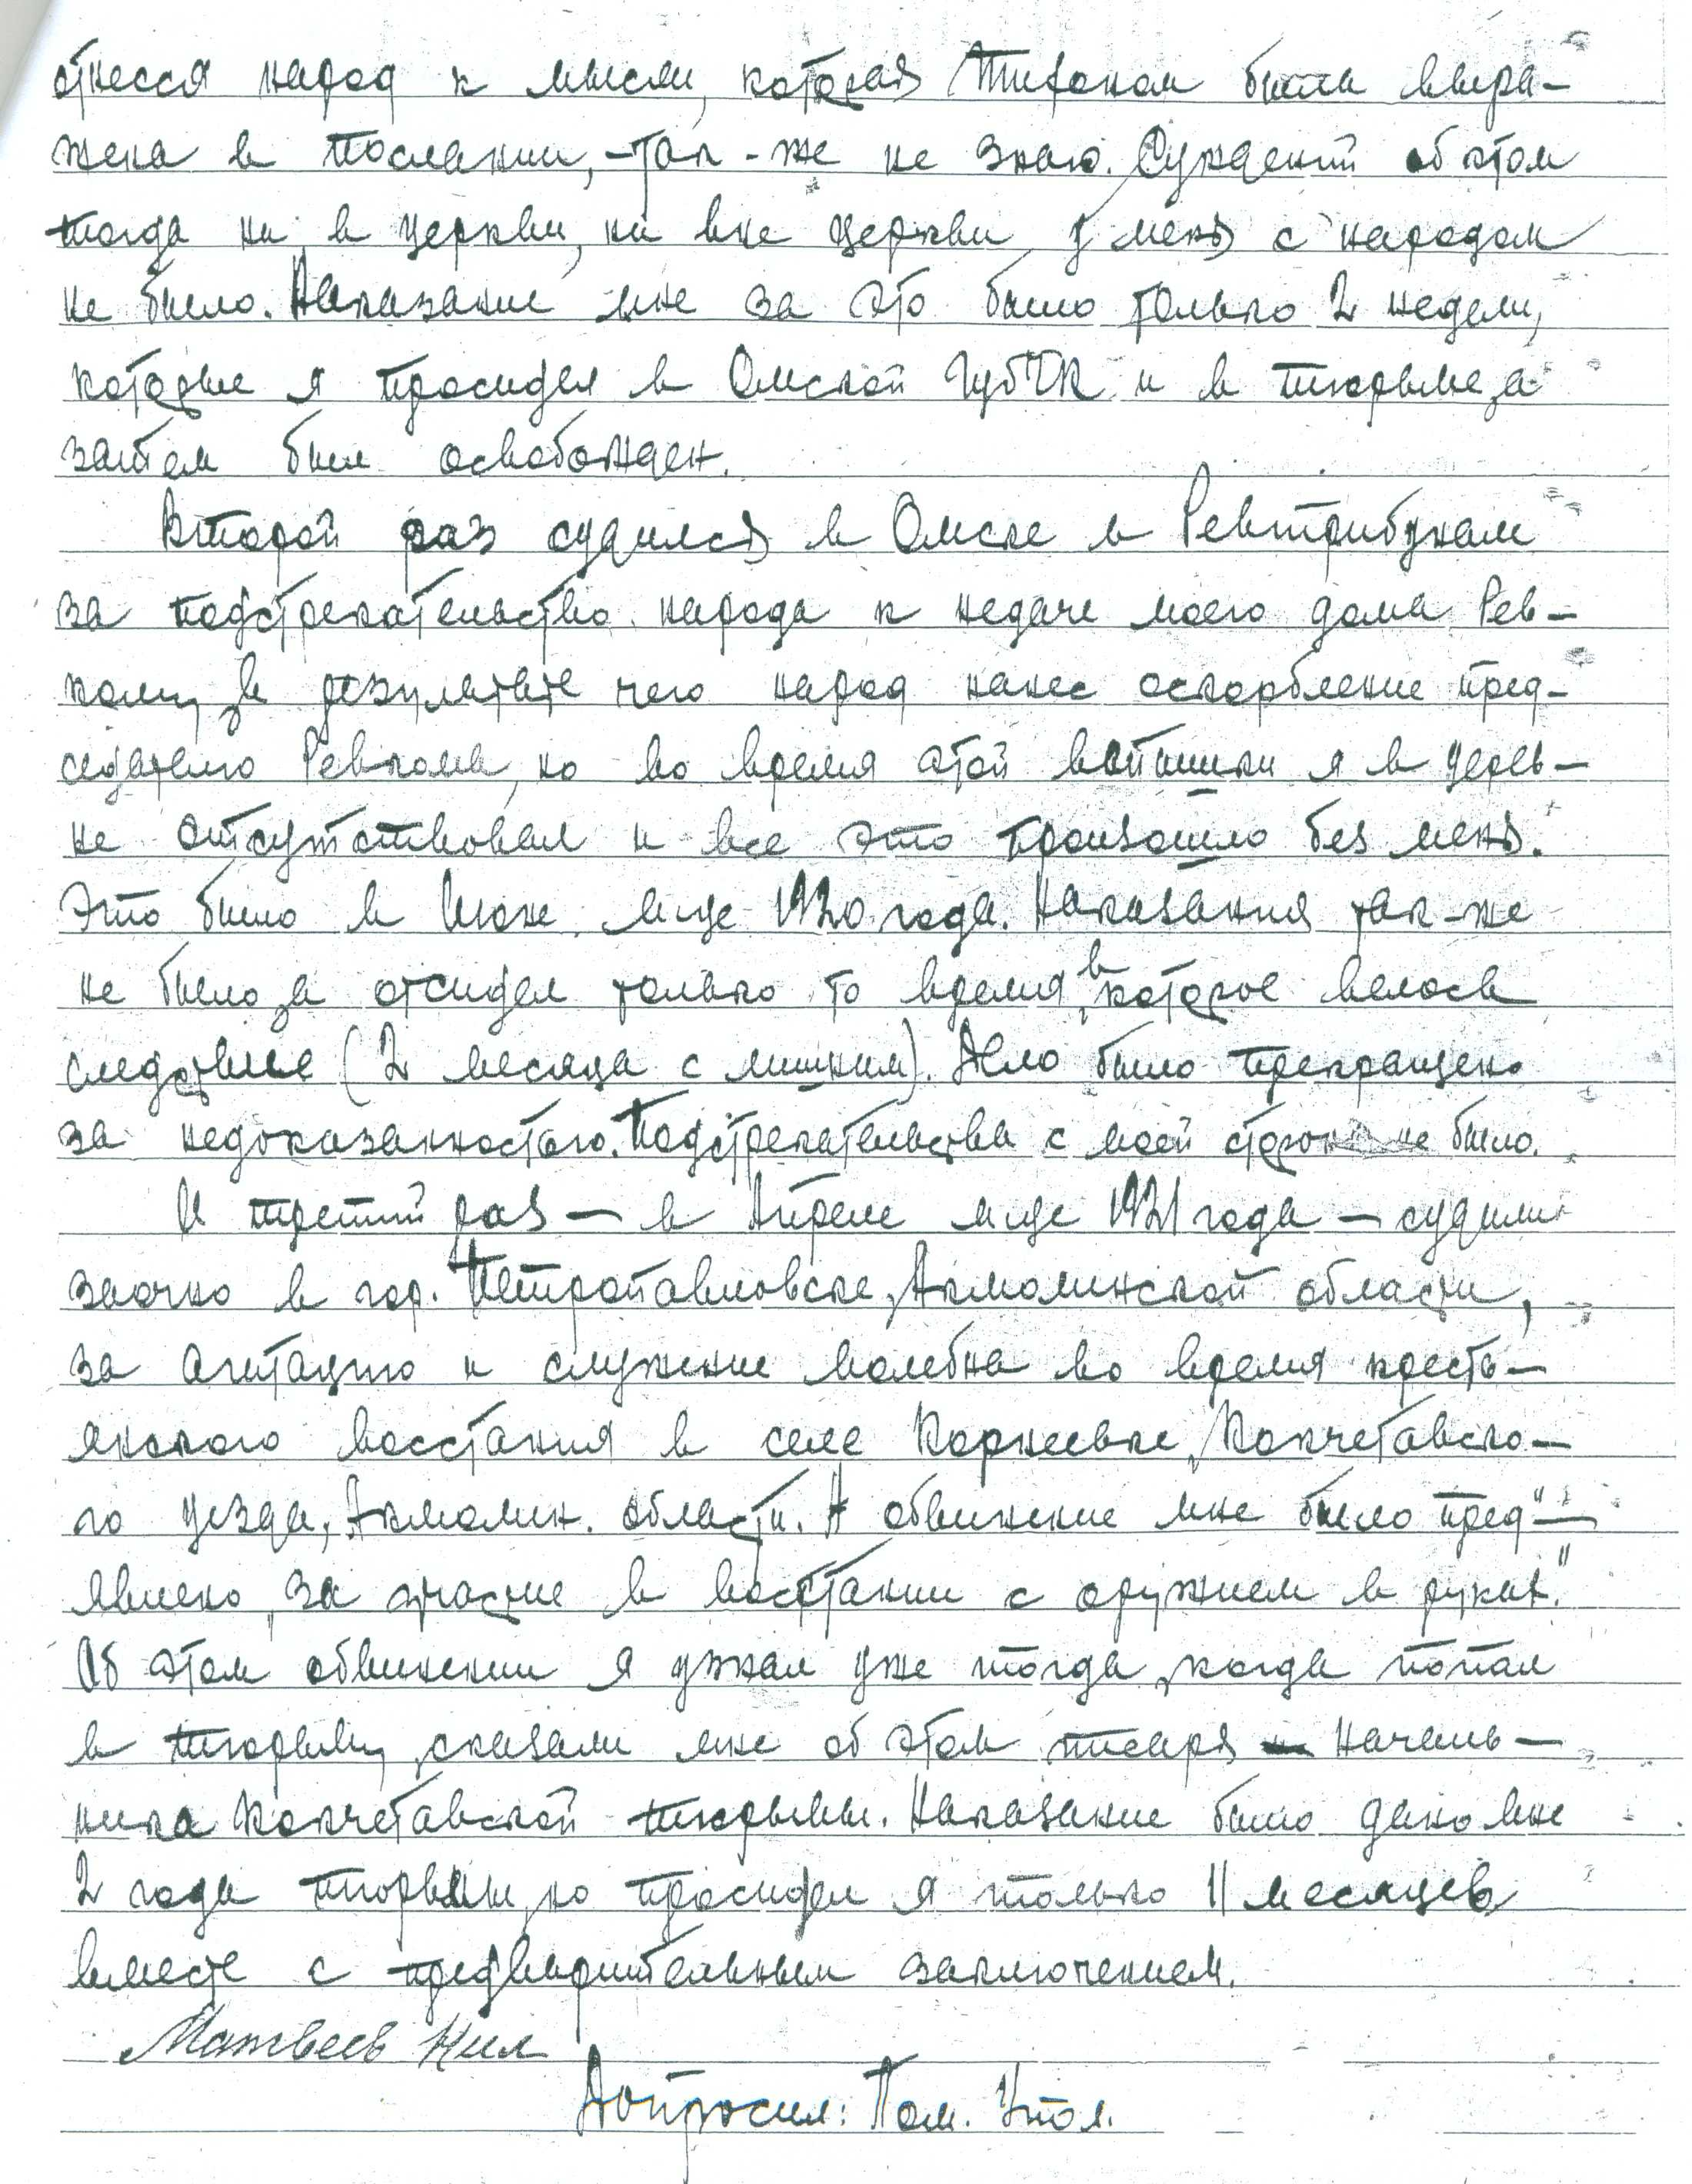 отнесся народ к мысли, которая Тихоном была выра-
жена в послании, - так-же не знаю. Суждений об этом
тогда ни в церкви, ни вне церкви у меня с народом
не было. Наказание мне за это было только 2 недели,
которые я просидел в Омской ГубЧК и в тюрьме, а
затем был освобожден.
Второй раз судился в Омске в Ревтрибунале
за подстрекательство народа к недаче моего дома Рев-
кому, в результате чего народ нанес оскорбление пред-
седателю Ревкома, но во время этой вспышки я в дерев-
не отсутствовал и все это произошло без меня.
Это было в Июне м-це 1920 года. Наказания так-же
не было, а отсидел только то время, в которое велось
следствие (2 месяца с лишним). Дело было прекращено
за недоказанностью. Подстрекательства с моей стороны не было.
И третий раз — в Апреле м-це 1921 года — судили
заочно в гор. Петропавловске, Акмолинской области,
за агитацию и служение молебна во время кресть-
янского восстания в селе Корнеевке, Кокчетавско-
го уезда, Акмолин. области. А обвинение мне было пред"-
явлено „за участие в восстании с оружием в руках."
Об этом обвинении я узнал уже тогда, когда попал
в тюрьму, сказали мне об этом писаря началь-
ника Кокчетавской тюрьмы. Наказание было дано мне
2 года тюрьмы, но просидел я только 11 месяцев
вместе с предварительным заключением.
Матвеев Нил
Допросил: Пом. Упол.